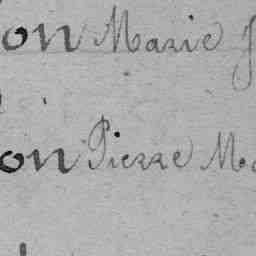 on Marie
on Pierre